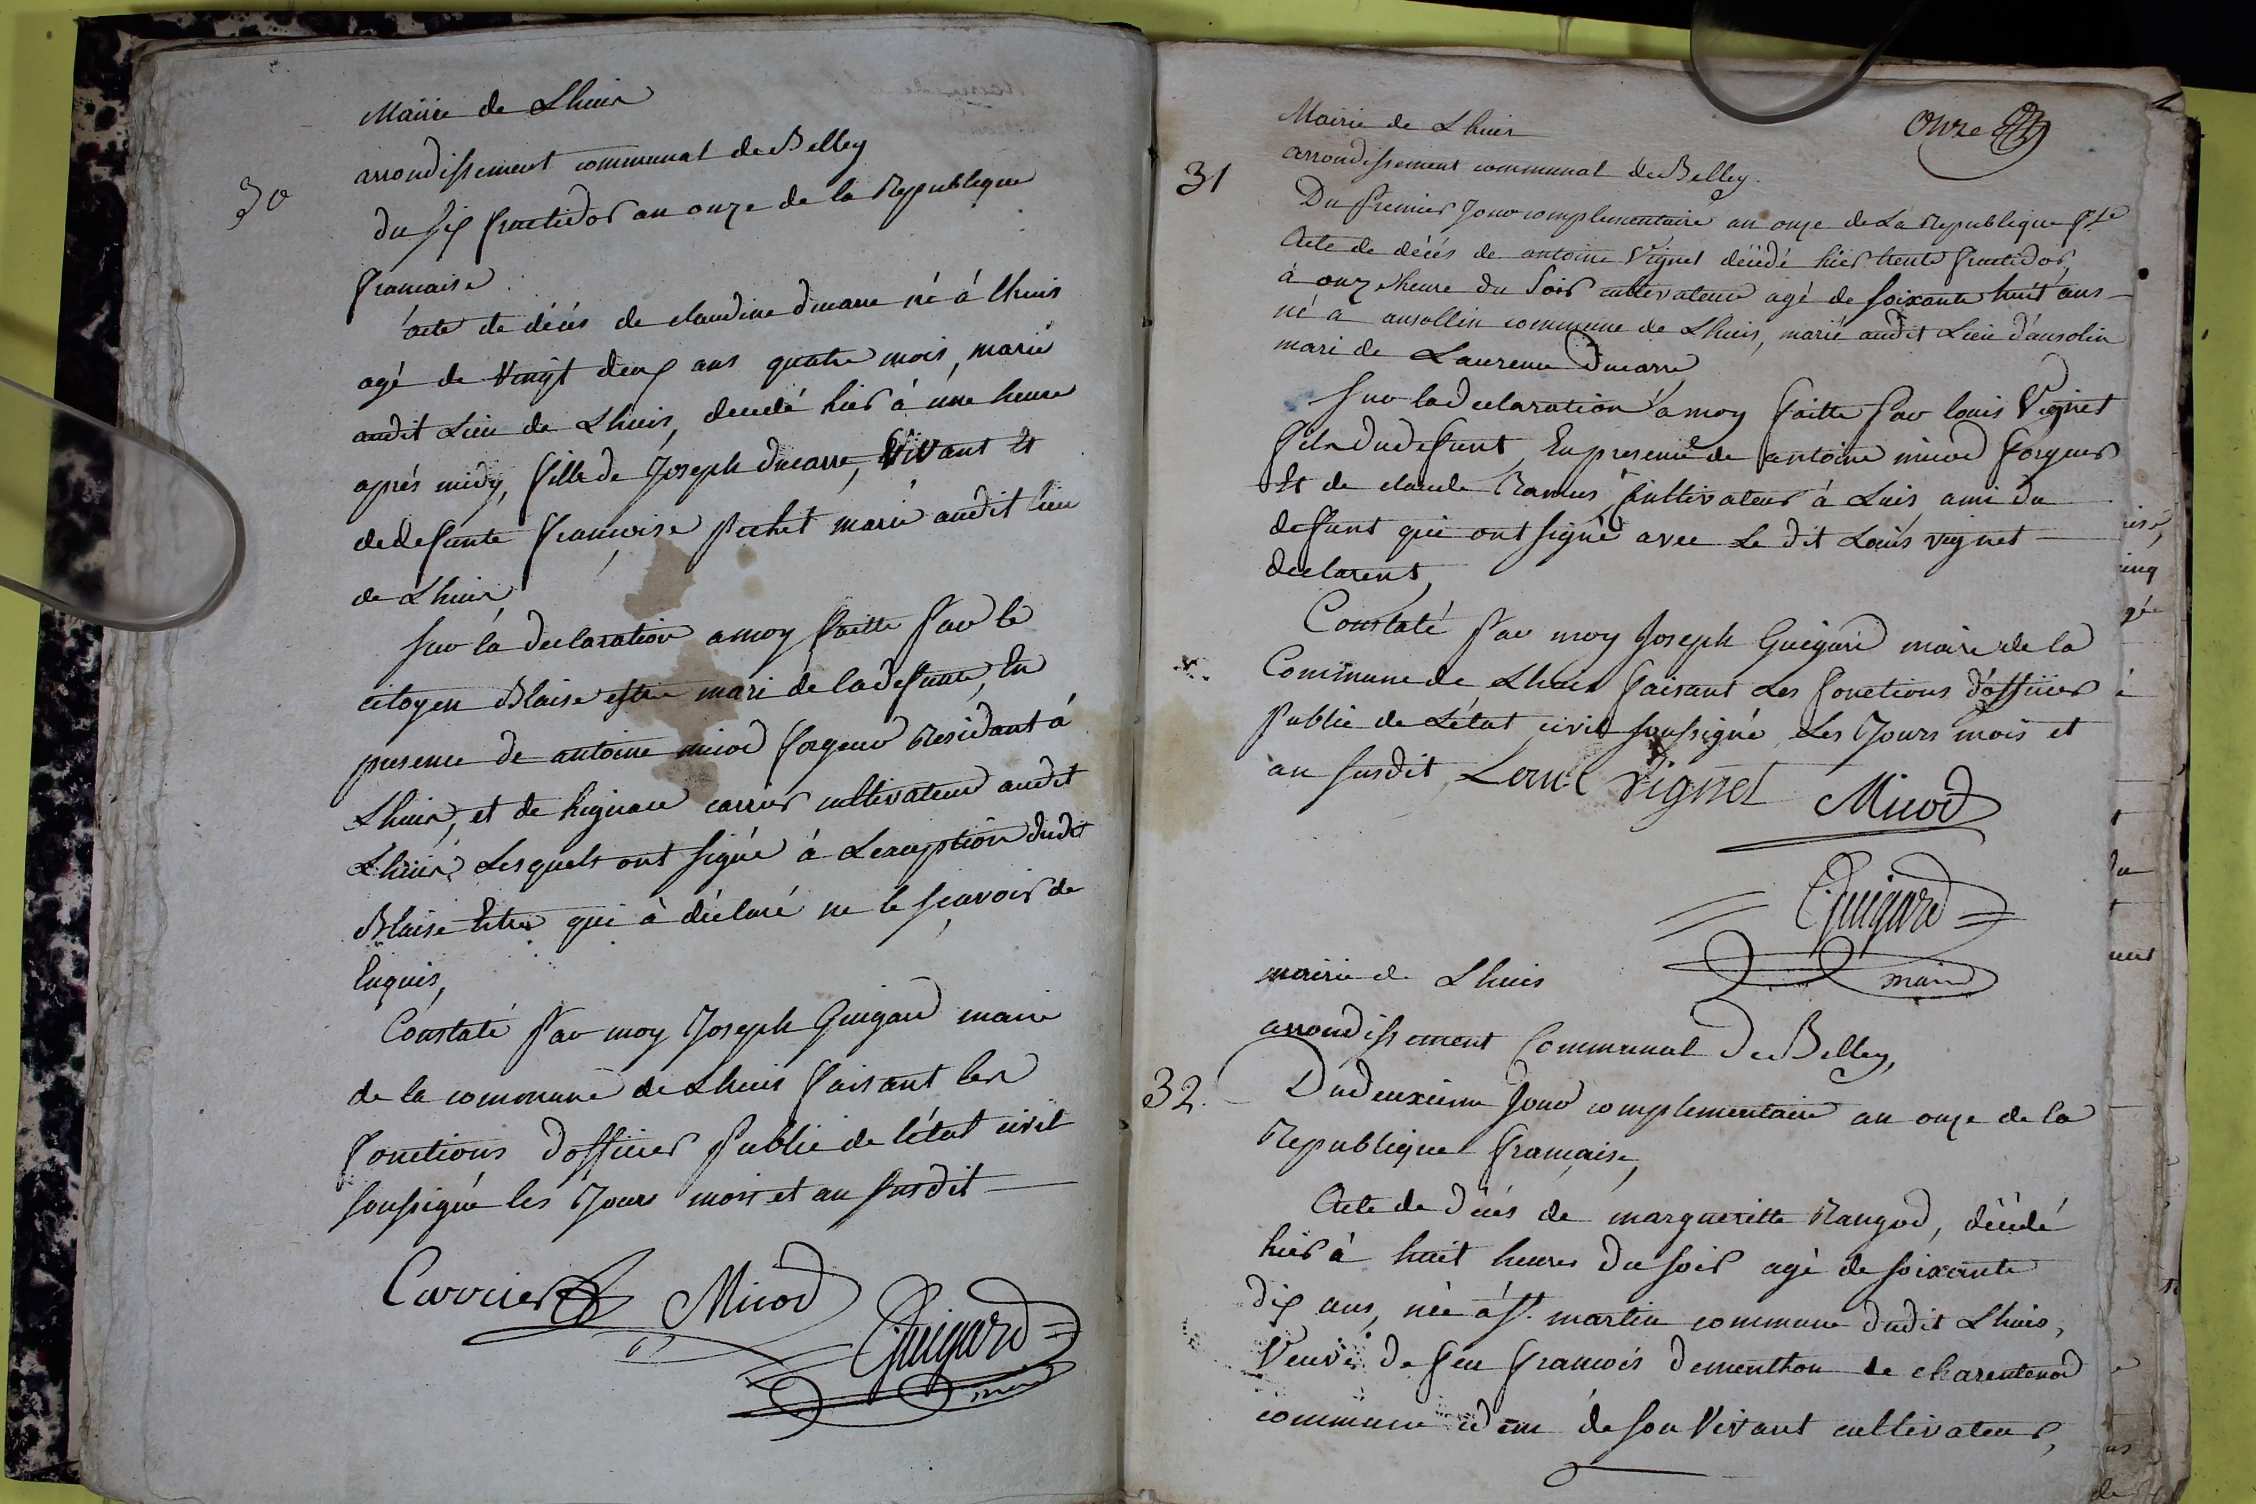 Mairie de Lhuis
arrondissement communal de Belley
30
du six fructidor an onze de la Republique
francaise
acte de décés de claudine ducarre né á lhuis
agé de vingt deux ans quatre mois, marié
audit Lieu de Lhuis, decedé hier á une heure
aprés midy, fille de Joseph ducarre, vivant Et
de defunte francoise pechet marié audit lieu
de Lhuis
sur la declaration a moy faitte par le
citoyen Blaise mari de la defunte, En
presence de antoine micod forgeur Residant á
Lhuis, et de hignace carrier cultivateur audit
Lhuis, Lesquels ont signé á Lexception dudit
Blaise qui à déclaré ne le scavoir de
Enquis,
Constaté par moy Joseph Guigard maire
de la commune de Lhuis faisant les
fonctions d'officier public de l'état civil
soussigné les Jour mois et an susdit
Carrier Micod
Guigard
maire
Onze
Mairie de Lhuis
arrondissement communal de Belley.
31
Du premier Jour complementaire an onze de La Republique fse
Acte de décés de antoine Vignet décédé hier trente fructidor,
à onze heure du soir cultivateur agé de soixante huit ans
né a ansollin commune de Lhuis, marié audit Lieu d'ansolin
mari de Laurence Ducarre
sur la declaration à moy faitte par louis Vignet
fils du defunt, En presence de antoine micod forgeur
Et de claude Ramus, Cultivateur à Luis, ami du
defunt qui ont signé avec Le dit Louis vignet
declarent,
Constaté par moy Joseph Guigard maire de la
Commune de Lhuis faisant Les fonctions d'officier
public de L'état civil soussigné, Les Jours mois et
an susdit Loui Vignet Micod
Guigard
maire
mairie de Lhuis
arrondissement Communal De Belley,
32.
Du deuxieme Jour complementaire an onze de la
Republique francaise,
Acte de décés de margueritte Rangod, décédé
hier à huit heures du soir agé de soixante
dix ans, née á st. martin commune dudit Lhuis,
Veuve de feu francois dementhon de charentenod
commune idem de son Vivant cultivateur,